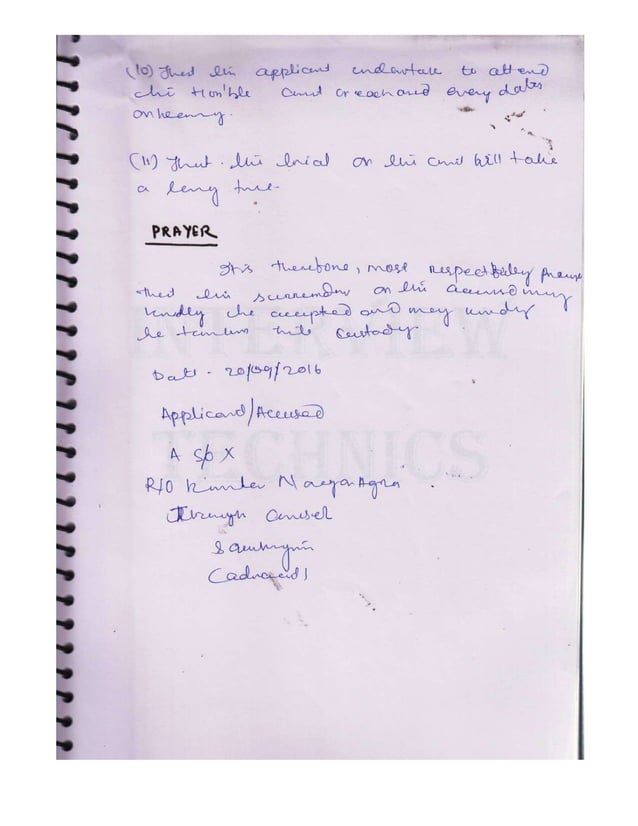 (10) That the applicant undertake to attend
the Hon'ble Court on each and every dates
on hearing.
(11) That the trial on the court will take
a long time.
PRAYER
It is therefore, most respectfully
that the surrender on the accused may
kindly be accepted and may kindly
be into custody.
Date - 20/09/2016
Applicant/Accused
A S/o X
R/O Nagar Agra
Through Counsel
(advocate)
INTERVIEW
TECHNICS